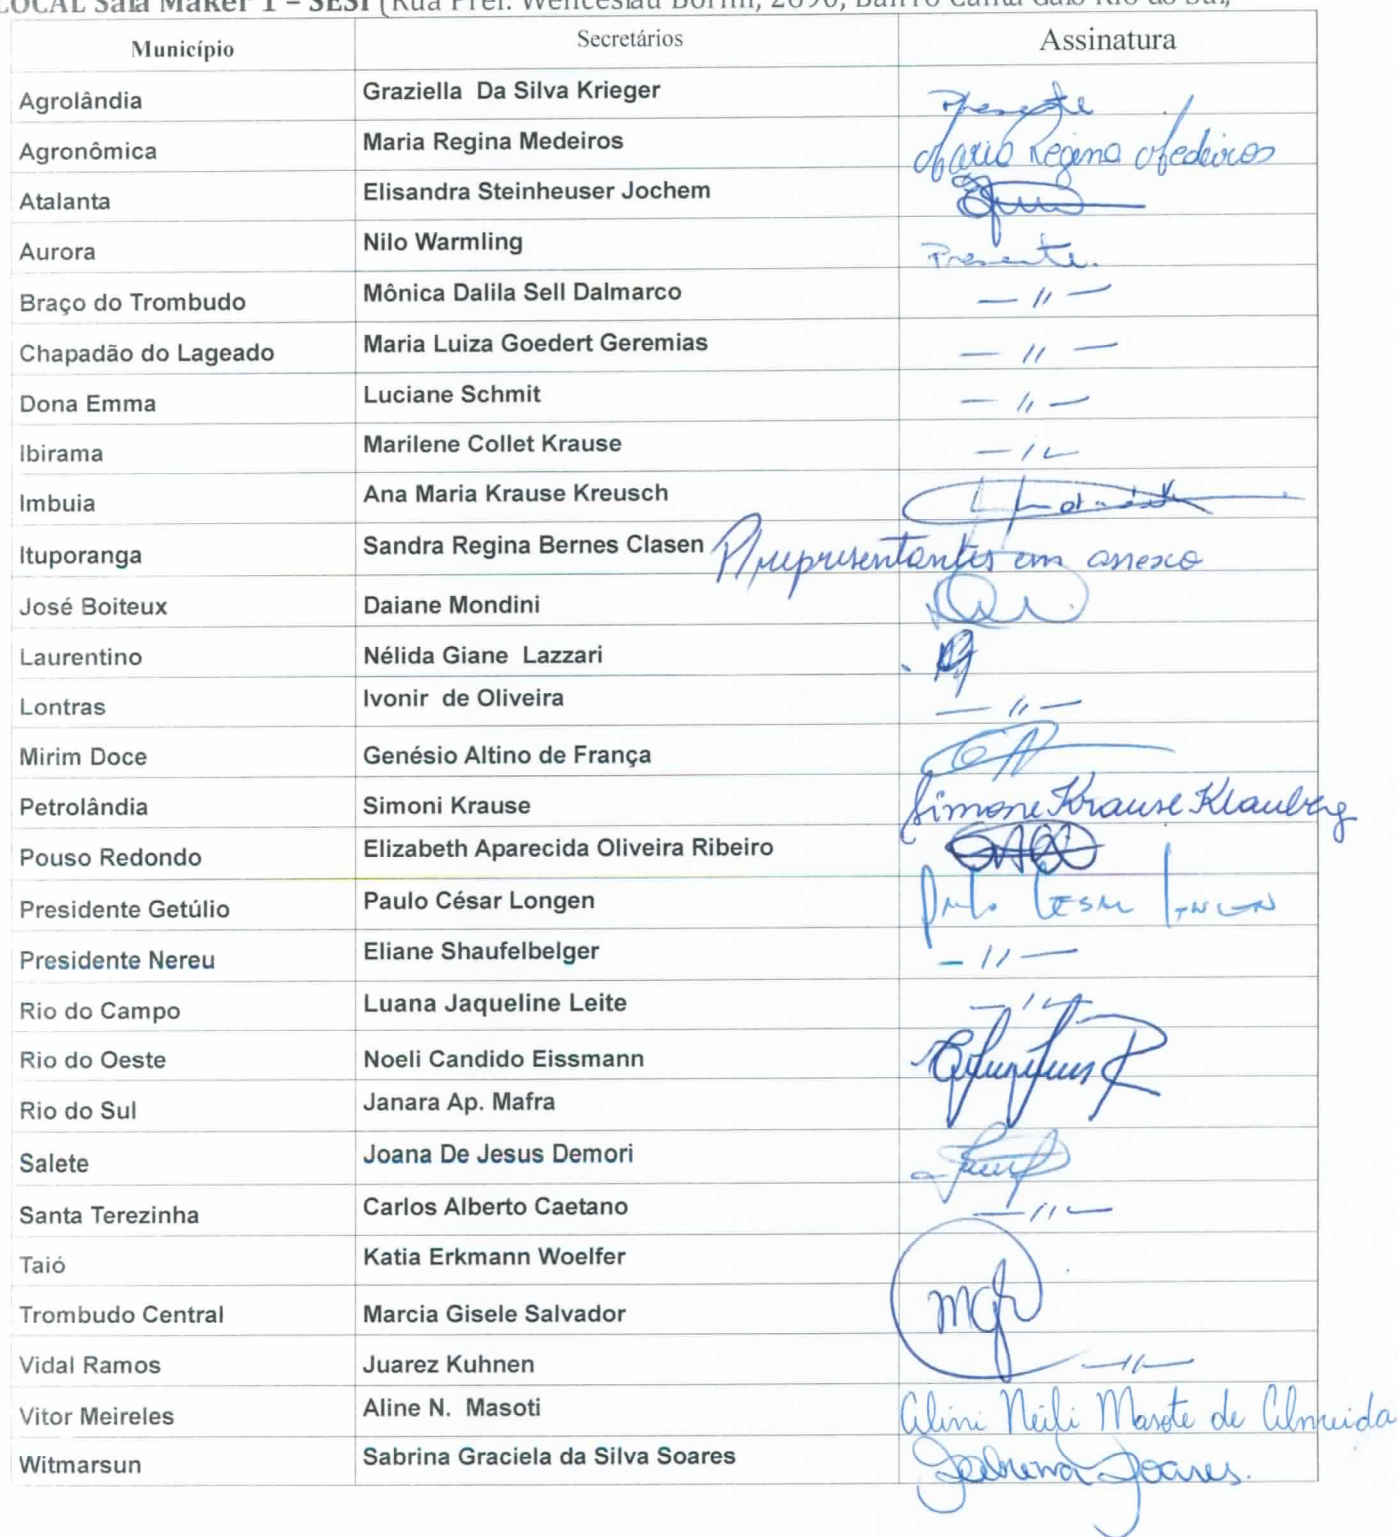 LOCAL Sala Maker 1 – SESI (Rua Pref. Wenceslau Borini, 2690, Bairro Canta Galo Rio do Sul,
Município Secretários Assinatura
Agrolândia Graziella Da Silva Krieger Presente
Agronômica Maria Regina Medeiros Maria Regina Medeiros
Atalanta Elisandra Steinheuser Jochem
Aurora Nilo Warmling Presente.
Braço do Trombudo Mônica Dalila Sell Dalmarco — 11 —
Chapadão do Lageado Maria Luiza Goedert Geremias — 11 —
Dona Emma Luciane Schmit — 11 —
Ibirama Marilene Collet Krause — 11 —
Imbuia Ana Maria Krause Kreusch
Ituporanga Sandra Regina Bernes Clasen P/ representantes em anexo
José Boiteux Daiane Mondini
Laurentino Nélida Giane Lazzari
Lontras Ivonir de Oliveira — 11 —
Mirim Doce Genésio Altino de França
Petrolândia Simoni Krause Simone Krause Klauberg
Pouso Redondo Elizabeth Aparecida Oliveira Ribeiro
Presidente Getúlio Paulo César Longen Paulo Cesar Longen
Presidente Nereu Eliane Shaufelbelger — 11 —
Rio do Campo Luana Jaqueline Leite — 11 —
Rio do Oeste Noeli Candido Eissmann
Rio do Sul Janara Ap. Mafra
Salete Joana De Jesus Demori
Santa Terezinha Carlos Alberto Caetano — 11 —
Taió Katia Erkmann Woelfer
Trombudo Central Marcia Gisele Salvador
Vidal Ramos Juarez Kuhnen — 11 —
Vitor Meireles Aline N. Masoti Alini Neili Masote de Almeida
Witmarsun Sabrina Graciela da Silva Soares Sabrina Soares.